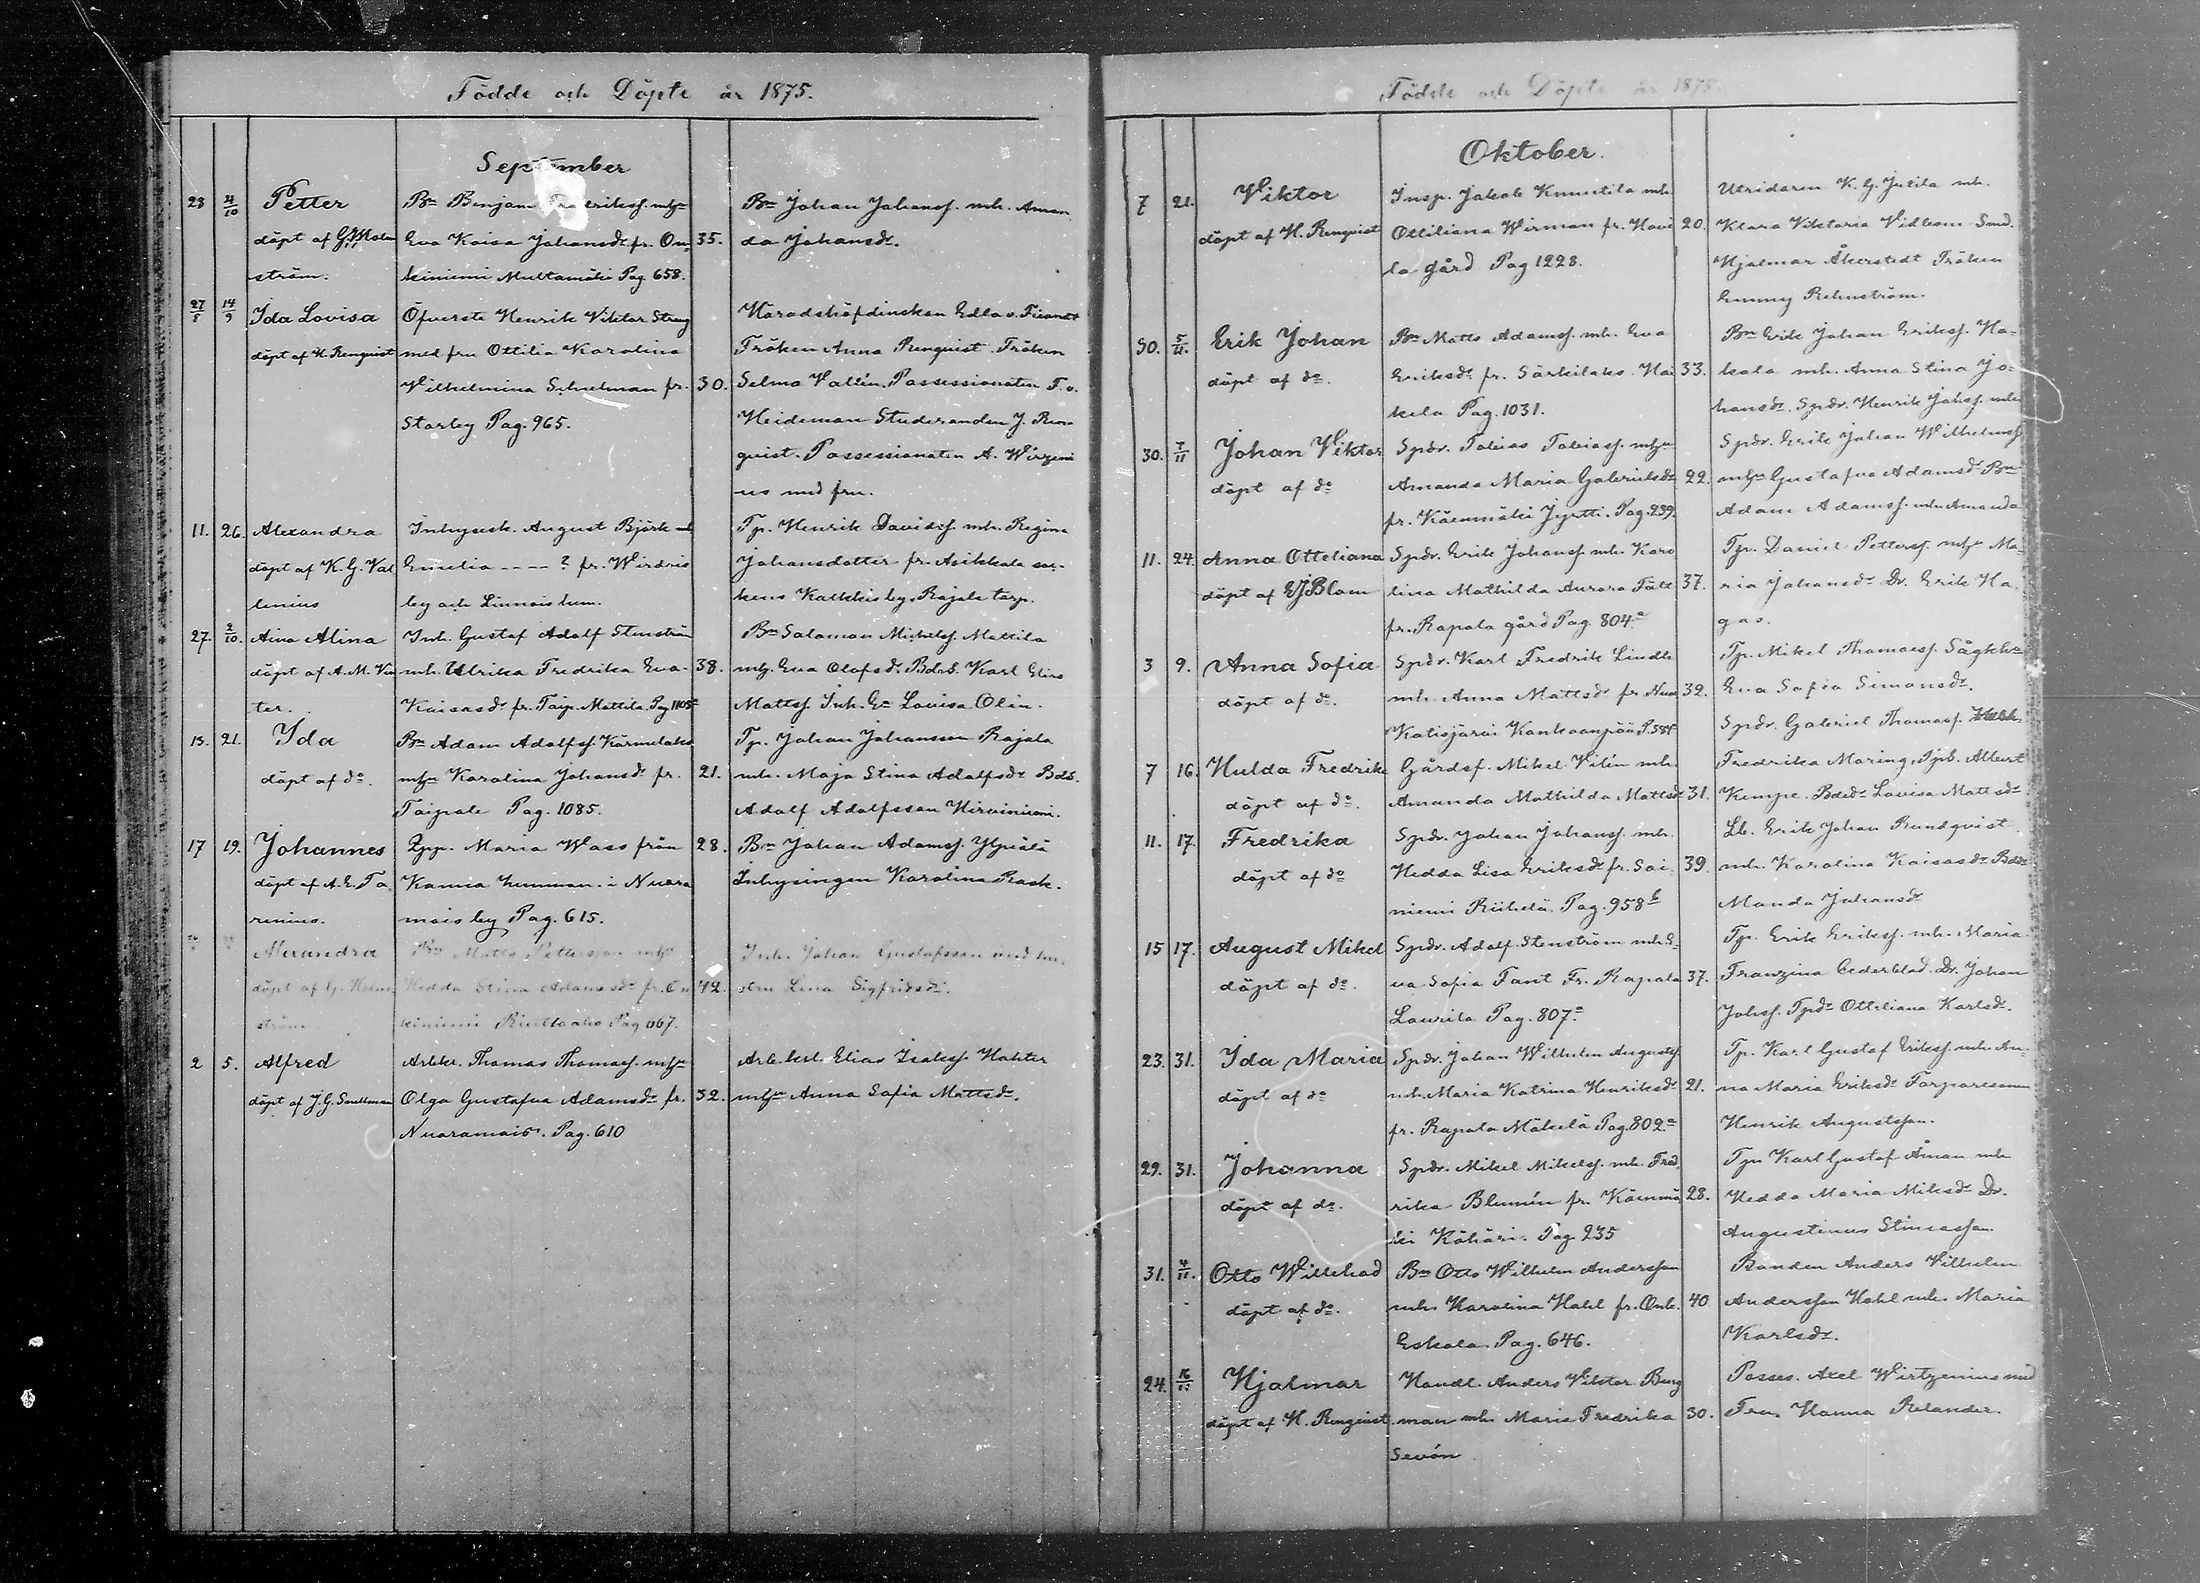 Födde och Döpte år 1875.
September
23 4/10 Petter
döpt af G. Holm
ström.
Bn Benjam Fredrikss. mhu
Eva Kaisa Johansdr. fr. On
kiniemi Multamäki Pag 658.
35.
Bn Johan Johanss. mh. Aman
da Johansdr.
27/8 14/9 Ida Lovisa
döpt af H. Renquist
Öfverste Henrik Viktor Strang
med fru Ottilia Karolina
Wilhelmina Schulman fr.
Starby Pag. 965.
30.
Häradshöfdinskan Edla v. Fieandt
Fröken Anna Renquist. Fröken
Selma Vallén. Possessionaten F. v.
Heideman Studeranden J. Ren-
quist. Possessionaten A. Wirzeni
us med fru.
11. 26. Alexandra
döpt af K. G. Val
lenius
Inhysesk. August Björk mh
Emelia ---- ? fr. Wirdois
by och Linnais hem.
Tp. Henrik Davidss. mh. Regina
Johansdotter fr. Asikkala soc-
kens Kalkkis by, Rajala torp.
27. 2/10. Aina Alina
döpt af A. M. Vin
ter.
Inh. Gustaf Adolf Stenström
mh. Ulrika Fredrika Eva-
Kaisasdr. fr. Taip. Mattila. Pag 1105
38.
Bn Salomon Mickelss. Mattila
mh. Eva Olofsdr. Bdes. Karl Elias
Mattss. Inh. En Lovisa Olin.
13. 21. Ida
döpt af do.
Bn Adam Adolfss. Kärmelaks
mhu Karolina Johansdr. fr.
Taipale Pag. 1085.
21.
Tp. Johan Johansson Rajala
mh. Maja Stina Adolfsdr. Bds.
Adolf Adolfsson Hirviniemi.
17 19. Johannes
döpt af A. E. Fa
renius.
Qpp. Maria Wass från
Kanna hemman i Nuora
mois by Pag. 615.
28.
Bn Johan Adamss. Ylpiälä
Inhysingen Karolina Rask.
Alexandra
döpt af G. Holm
ström
Bn Matts Pettersson mhu
Hedda Stina Adamsdr. fr. On
kiniemi Pag 667.
42.
Inh. Johan Gustafsson med hu-
stru Lena Sigfridsdr.
2 5. Alfred
döpt af J. G. Snellman
Arbkr. Thomas Thomass. mhu
Olga Gustafva Adamsdr. fr.
Nuoramois. Pag. 610
32.
Arb. krl. Elias Isakss. Hohter
mhu Anna Sofia Mattsdr.
Födde och Döpte år 1875.
Oktober.
7 21. Viktor
döpt af H. Renquist
Insp. Jakob Knuutila mh.
Ottiliana Wirman fr. Hovi
la gård Pag 1228.
20.
Utridaren K. G. Julila mh.
Klara Viktoria Vidbom Smd.
Hjalmar Åkerstedt Fröken
Emmy Rehnström.
30. 5/11. Erik Johan
döpt af do.
Bn Matts Adamss. mh. Eva
Eriksdr. fr. Särkilaks Hai
kela Pag. 1031.
33.
Bn Erik Johan Erikss. Ha-
kala mh. Anna Stina Jo-
hansdr. Spdr. Henrik Johss. mh
30. 7/11 Johan Viktor
döpt af do
Spdr. Tobias Tobiass. mhu
Amanda Maria Gabrielsdr.
fr. Käenmäki Jyrtti. Pag. 239.
22.
Spdr. Erik Johan Wilhelmss.
mhu Gustafva Adamsdr. Bn
Adam Adamss. mh. Amanda
11. 24. Anna Otteliana
döpt af EJBlom
Spdr. Erik Johanss. mh. Karo
lina Mathilda Aurora Fält
fr. Rapala gård Pag. 804a
37.
Tp. Daniel Petterss. mhu Ma-
ria Johansdr. Dr. Erik Ha
gas.
3 9. Anna Sofia
döpt af do.
Spdr. Karl Fredrik Lindh
mh. Anna Mattsdr. fr. Nuo
Katisjärvi Kankaanpää P. 585
32.
Tp. Mikel Thomass. Sågkka
Eva Sofia Simonsdr.
Spdr. Gabriel Thomass.
7 16. Hulda Fredrika
döpt af do.
Gårdsf. Mikel Vilén mh.
Amanda Mathilda Mattsdr.
31.
Fredrika Maring, Tpb. Albert
Kempe. Bdedr. Lovisa Mattsdr.
11. 17. Fredrika
döpt af do
Spdr. Johan Johanss. mh.
Hedda Lisa Eriksdr. fr. Sai
niemi Riihelä Pag. 958b
39.
Lb. Erik Johan Rundqvist
mh. Karolina Kaisasdr. Bddr.
Manda Johansdr
15 17. August Mikel
döpt af do.
Spdr. Adolf Stenström mh. E-
va Sofia Fant Fr. Rapala
Laurila Pag. 807a
37.
Tp. Erik Erikss. mh. Maria
Franzina Cederblad. Dr. Johan
Johss. Tpdr. Otteliana Karlsdr.
23. 31. Ida Maria
döpt af do
Spdr. Johan Wilhelm Augustss.
mh. Maria Katrina Henriksdr.
fr. Rapala Mäkelä Pag. 802a
21.
Tp. Karl Gustaf Erikss. mh. An-
na Maria Eriksdr. Torparesonen
Henrik Augustsson.
29. 31. Johanna
döpt af do.
Spdr. Mikel Mikelss. mh. Fred
rika Blumén fr. Käenmä
ki Kähäri. Pag. 235
28.
Tpn Karl Gustaf Åman mh.
Hedda Maria Miksdr. Dr.
Augustinus Stinasson.
31. 4/11. Otto Willehad
döpt af do.
Bn Otto Wilhelm Andersson
mh. Karolina Hahl fr. Onk.
Eskola Pag. 646.
40
Bonden Anders Vilhelm
Andersson Hahl mh. Maria
Karlsdr.
24. Hjalmar
döpt af H. Renquist
Handl. Anders Viktor Berg
man mh. Maria Fredrika
Sevón
30.
Posses. Axel Wirtzenius med
Fru. Hanna Relander.